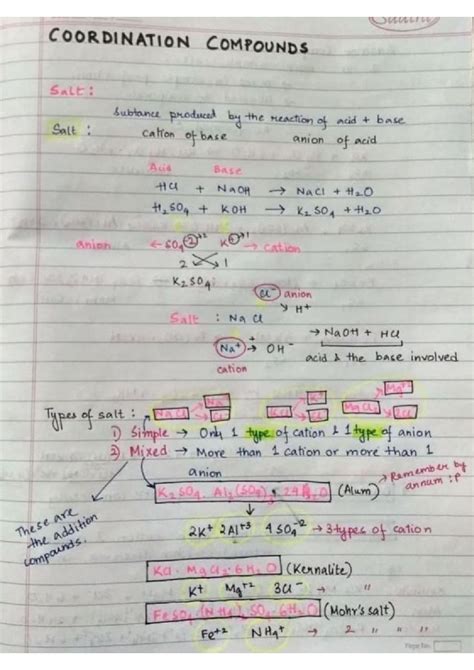 COORDINATION COMPOUNDS
Salt :
Subtance produced by the reaction of acid + base
Salt : cation of base anion of acid
Acid Base
HCl + NaOH → NaCl + H2O
H2SO4 + KOH → K2SO4 + H2O
anion ← SO4 -2 K +1 → cation
2 1
K2SO4
Cl- anion
↘ H+
Salt : NaCl → NaOH + HCl
Na+ → OH- acid & the base involved
cation
Types of salt : NaCl Na+ Cl- KCl K+ Cl- MgCl2 Mg+2 2Cl-
1) Simple → Only 1 type of cation & 1 type of anion
2) Mixed → More than 1 cation or more than 1
anion
→ Remember by
K2SO4. Al2(SO4)3. 24 H2O (Alum)
These are
the addition
compounds.
2K+ 2Al+3 4SO4-2 → 3 types of cation
KCl. MgCl2. 6H2O (Kernalite)
K+ Mg+2 3Cl- → " "
FeSO4. (NH4)2SO4. 6H2O (Mohr's salt)
Fe+2 NH4+ → 2 " " "
Page No.